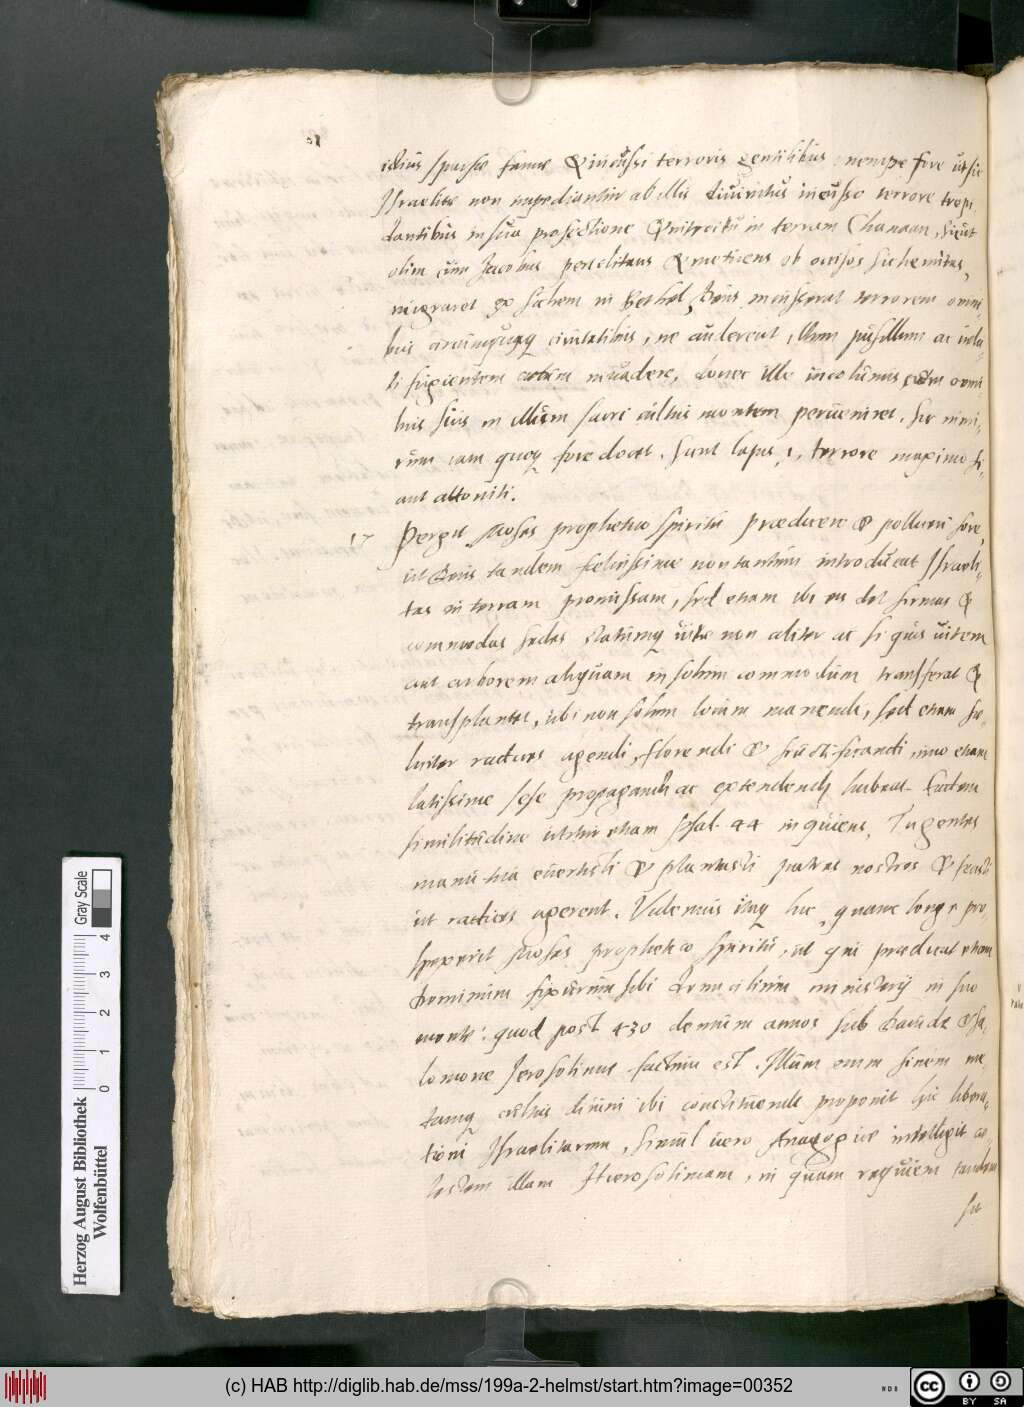 istius sparsae famae & incussi terroris gentilibus: nempe fore ut sic
Israelitae non impediantur ab illis divinitus incusso terrore trepi-
dantibus in sua profectione & introitu in terram Chanaan, sicut
olim cum Jacobus & metuens ob occisos Sichemitas,
migraret ex Sichem in Bethel, Deus incusserat terrorem omni
bus civitatibus, ne auderent illum pusillum ac vela-
ti fugientem coetum invadere, donec ille incolumis cum omni
bus suis in illum sacri cultus montem perveniret. Sic nimi-
rum iam quoq fore docet. Sunt lapis, i, terrore maximo fi-
ant attoniti.
17 Pergit Moses prophetico spiritu praedicere & polliceri fore,
ut Deus tandem felicissime non tantum introducat Israeli-
tas in terram promissam, sed etiam ibi eis det firmas &
commodas sedes statumq vitae non aliter ac si quis vitem
aut arborem aliquam in solum commodum transferat &
transplantet, ubi non solum locum manendi, sed etiam fe-
liciter radices agendi, florendi & fructificandi imo etiam
latissime sese propagandi ac extendendi habeat. Eadem
similitudine utitur etiam Psal. 44 inquiens, Tu gentes
manu tua evertisti & plantasti patres nostros & fecisti
ut radices agerent. Videmus itaq hic, quam longe pro-
spexerit Moses prophetico spiritu, ut qui praedicat etiam
Dominum fixurum sibi domicilium ministerij in suo
monte: quod post 430 demum annos sub Davide & Sa-
lomone Jerosolimis factum est. Illum enim finem me-
tamq cultus divini ibi constituendi proponit hic libera-
tioni Israelitarum, simul vero Anagogice intelligit coe-
lestem illam Hierosolimam, in quam requiem tandem
(c) HAB http://diglib.hab.de/mss/199a-2-helmst/start.htm?image=00352
Herzog August Bibliothek
Wolfenbüttel
0 1 2 3 4
Gray Scale
CC BY SA